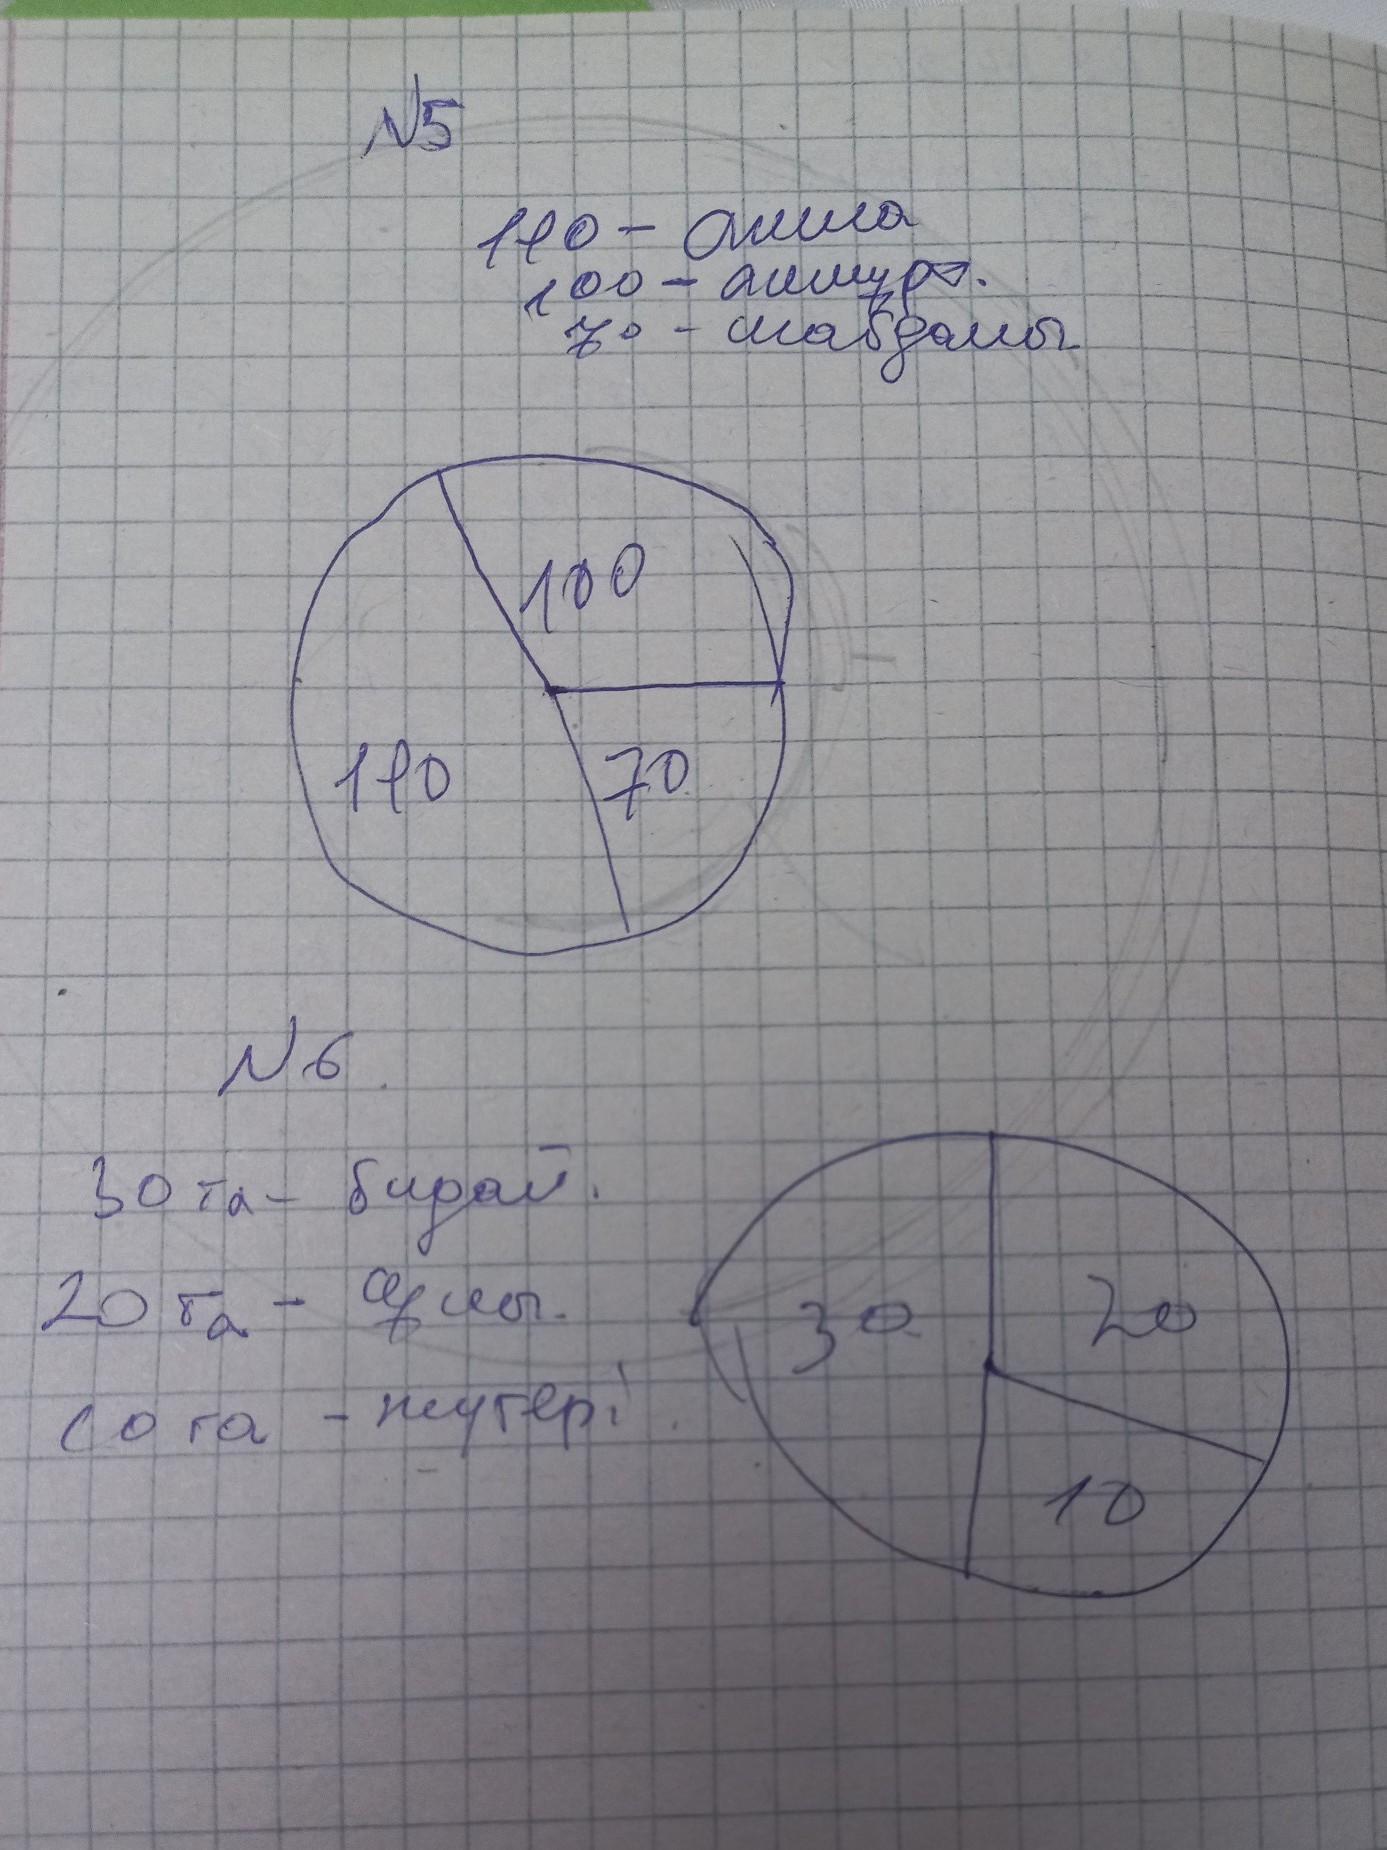 N5
190 - алма
100 - алмұрт.
70 - шабдалы
100
190
70
N6.
30 га - бидай.
20 га - арпы.
10 га - жүгері.
30
20
10